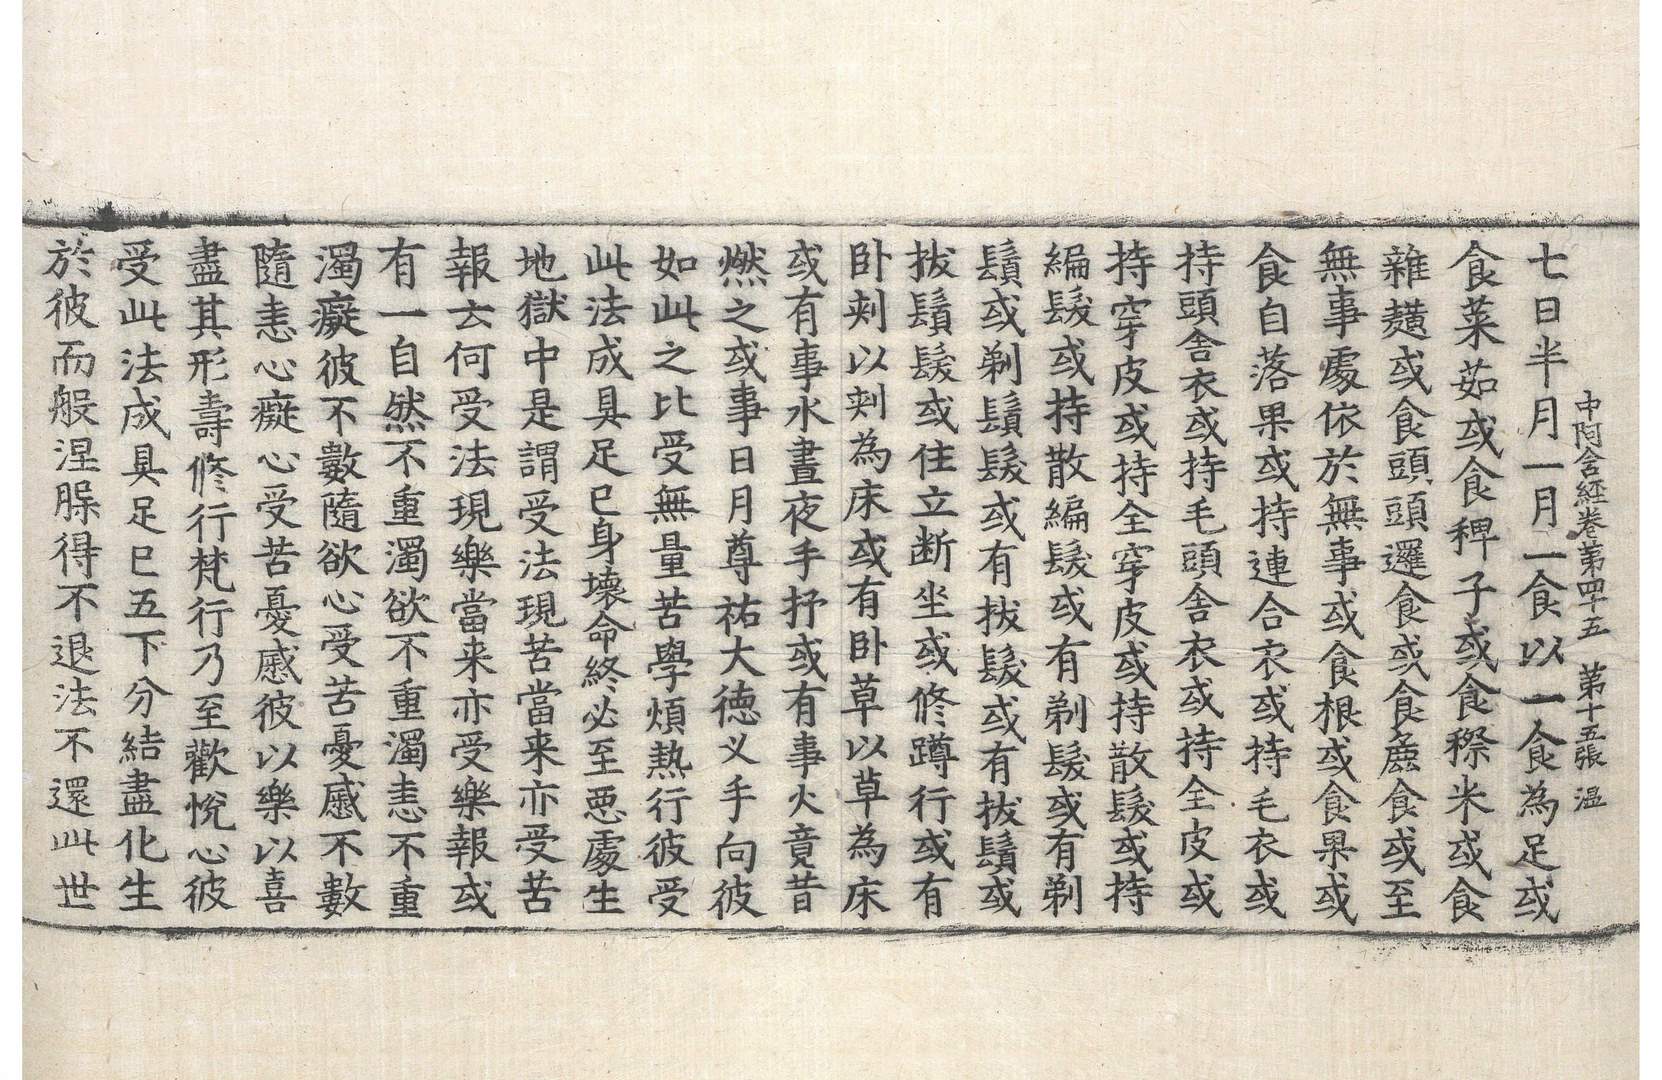 中阿含經卷第四十五 第十五張 温
七日半月一月一食以一食為足或
食菜茹或食稗子或食穄米或食
雜𪎊或食頭頭邏食或食麁食或至
無事處依於無事或食根或食果或
食自落果或持連合衣或持毛衣或
持頭舍衣或持毛頭舍衣或持全皮或
持穿皮或持全穿皮或持散髮或持
編髮或持散編髮或有剃髮或有剃
鬚或剃鬚髮或有拔髮或有拔鬚或
拔鬚髮或住立断坐或修蹲行或有
卧刺以刺為床或有卧草以草為床
或有事水晝夜手抒或有事火竟昔
燃之或事日月尊祐大德义手向彼
如此之比受無量苦學煩熱行彼受
此法成具足已身壞命終必至惡處生
地獄中是謂受法現苦當来亦受苦
報云何受法現樂當来亦受樂報或
有一自然不重濁欲不重濁恚不重
濁癡彼不數隨欲心受苦憂慼不數
隨恚心癡心受苦憂慼彼以樂以喜
盡其形壽修行梵行乃至歡悅心彼
受此法成具足已五下分結盡化生
於彼而般涅槃得不退法不還此世